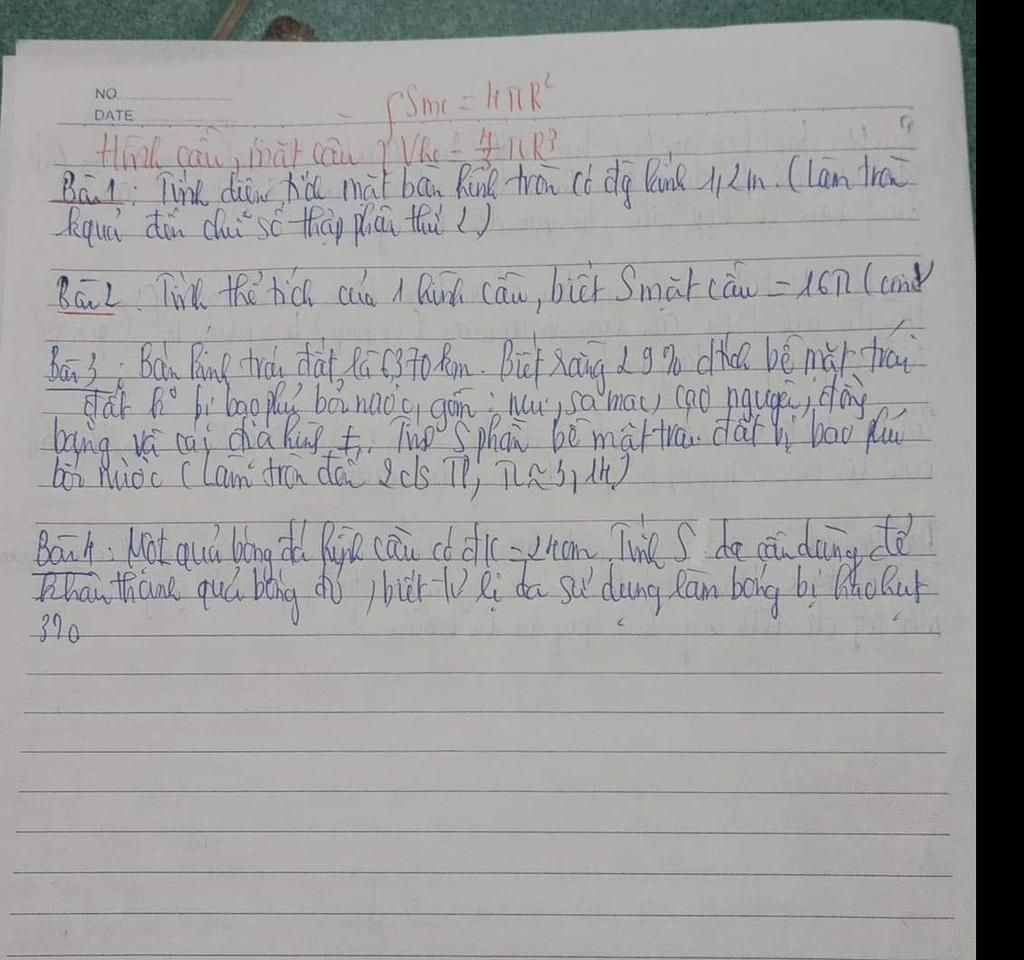 NO
DATE
Smc = 4πR²
Hình cầu, mặt cầu Vhc = 4/3 πR³
Bài 1: Tính diện tích mặt bàn hình tròn có đg kính 1,2m. (Làm tròn
kquả đến chữ số thập phân thứ 2)
Bài 2 Tính thể tích của 1 hình cầu, biết Smặt cầu = 16π (cm²)
Bài 3: Bán kính trái đất là 6370km. Biết rằng 29% dtích bề mặt trái
đất k° bị bao phủ bởi nước, gồm: núi, sa mạc, cao nguyên, đồng
bằng và các địa hình ≠. Tính S phần bề mặt trái đất bị bao phủ
bởi nước (làm tròn đến 2cs TP, π ≈ 3,14)
Bài 4: Một quả bóng đá hình cầu có đk = 24cm. Tính S da cần dùng để
khâu thành quả bóng đó, biết tỉ lệ da sử dụng làm bóng bị hao hụt
3%